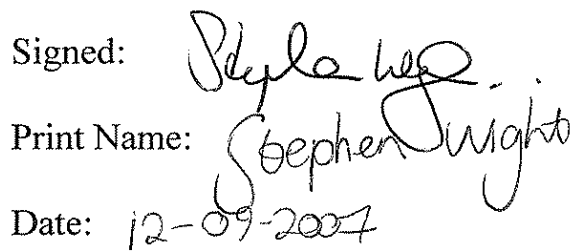 Signed:
Print Name: Stephen Wright
Date: 12-09-2007